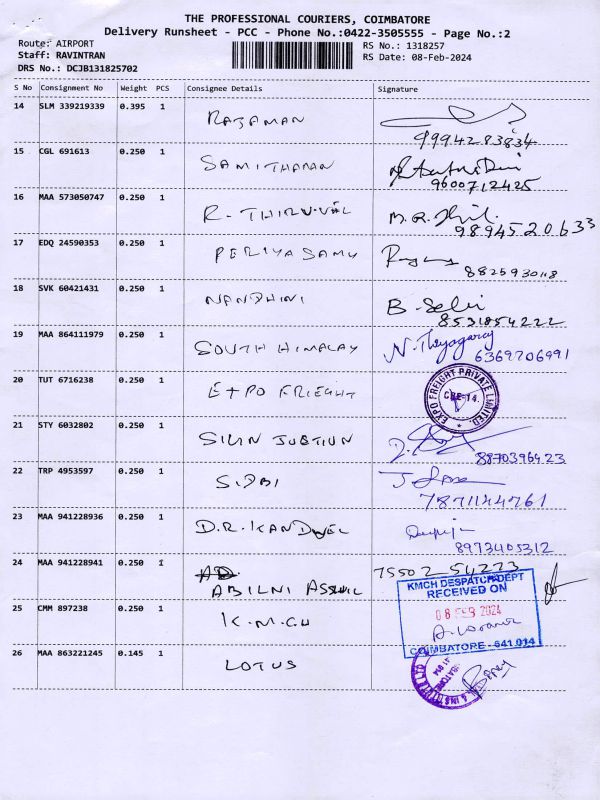 THE PROFESSIONAL COURIERS, COIMBATORE
Delivery Runsheet - PCC - Phone No.:0422-3505555 - Page No.:2
Route: AIRPORT
RS No.: 1318257
Staff: RAVINTRAN
RS Date: 08-Feb-2024
DRS No.: DCJB131825702
S No Consignment No Weight PCS Consignee Details Signature
14 SLM 339219339 0.395 1 RAJAMAN
9994283834
15 CGL 691613 0.250 1 SAMITHARAN
9600712425
16 MAA 573050747 0.250 1 R. THIRUVEL
9894520633
17 EDQ 24590353 0.250 1 PERIYASAMY
8825930118
18 SVK 60421431 0.250 1 NANDHINI B. Selvi
8531854222
19 MAA 864111979 0.250 1 SOUTH HIMALAY N. Thyagaraj
6369706991
20 TUT 6716238 0.250 1 EXPO FRIEGHT
EXPO FREIGHT PRIVATE LIMITED.
CBE-14.
21 STY 6032802 0.250 1
8870396423
22 TRP 4953597 0.250 1 SIDBI
7871144761
23 MAA 941228936 0.250 1 D.R. KANDVEL
8973405312
24 MAA 941228941 0.250 1 ABILNI
75502 54273
KMCH DESPATCH DEPT
RECEIVED ON
08 FEB 2024
COIMBATORE - 641 014
25 CMM 897238 0.250 1 K.M.C.H
26 MAA 863221245 0.145 1 LOTUS